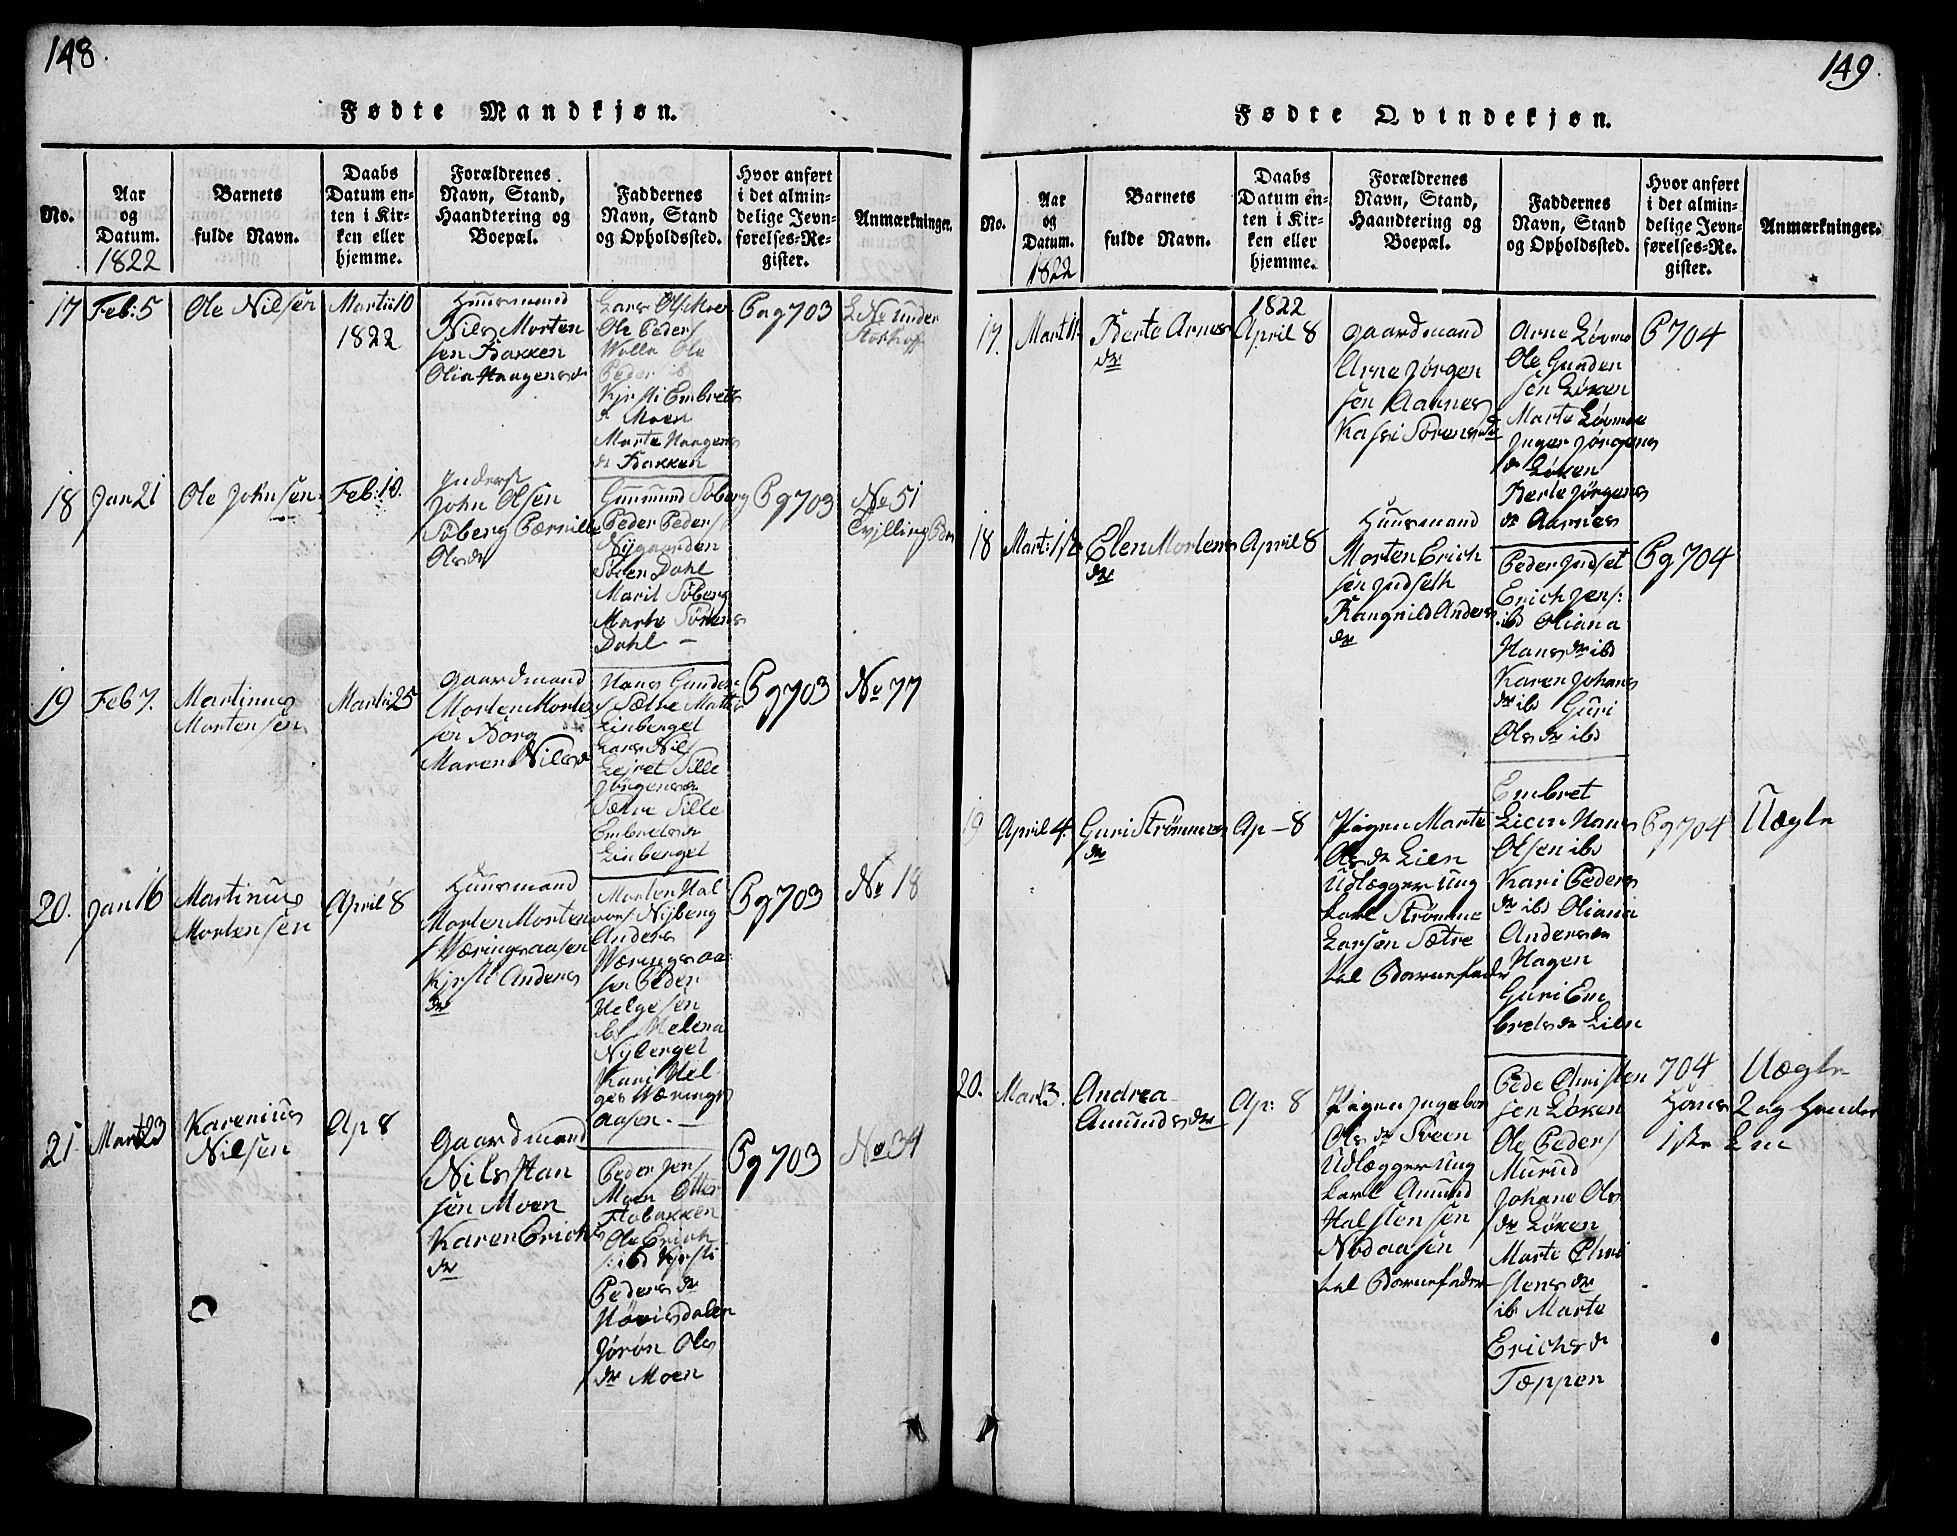 148.
Fødte Mandkjøn.
No.
Aar
og
Datum.
1822
Barnets
fulde Navn.
Daabs
Datum en-
ten i Kir-
ken eller
hjemme.
Forældrenes
Navn, Stand,
Haandtering og
Boepæl.
Faddernes
Navn, Stand
og Opholdssted.
Hvor anført
i det almin-
delige Jevn-
førelses-Re-
gister.
Anmærkninger.
17
Feb: 5
Ole Nilsen
Martii 10
1822
Huusmand
Nils Morten
sen Bakken
Olia Haagensdr
Lars Ols Moe
Ole Peders
Wolla Ole
Peder ib
Kjersti Embrets
dr Moen
Marte Haagens
dr Bakken
Pag 703
No under
18
Jan 21
Ole Johnsen
Feb: 10.
Inders
John Olsen
Søberg Pærnille
Olsdr
Gunmund Søberg
Peder Peders
Nygaarden
Søren Dahl
Marit Søberg
Marte Sørens
Dahl —
Pg 703
No 51
Tvilling
19
Feb 7.
Martinus
Mortensen
Martii 25
Gaardmand
Morten Morten
sen Borg
Maren Nilsdr
Hans Gunder
s Sætre Matt
Linberget
Lars Nils
Lejret Sille
Jørgensdr
Sætre Sille
Embretsdr
Linberget
Pg 703
No 77
20.
Jan 16
Martinus
Mortensen
April 8
Huusmand
Morten Morten
s Wæringsaasen
Kjersti Anders
dr
Morten Hal
vors Nyberg
Anders
Wæringsaa
sen Peder
Helgesen
ib Helena
Nyberget
Kari Hel
ges Wærings
aasen. —
Pg 703
No 18
21
Mart 23
Karenius
Nilsen
Ap 8
Gaardmand
Nils Han
sen Moen
Karen Erichs
dr
Peder Jens
Moen Otter
Flobakken
Ole Erich
s: ibd Kjersti
Pedersdr
Høvisdalen
Jørøn Ols
dr Moen
Pg 703
No 34
149.
Fødte Qvindekjøn.
No.
Aar
og
Datum.
1822
Barnets
fulde Navn.
Daabs
Datum en-
ten i Kir-
ken eller
hjemme.
Forældrenes
Navn, Stand,
Haandtering og
Boepæl.
Faddernes
Navn, Stand
og Opholdssted.
Hvor anført
i det almin-
delige Jevn-
førelses-Re-
gister.
Anmærkninger.
17.
Mart 11
Berte Arnes
dr
1822
April 8
Gaardmand
Arne Jørgen
sen Aarnes
Kassi Sørensdr
Arne Løvmo
Ole Gunder
sen Løken
Marte Løvmoe
Inger Jørgens
dr Løken
Berte Jørgens
dr Aarnes
P 704
18
Mart: 1ste
Elen Mortens
dr
April 8
Huusmand
Morten Erich
sen Indseth
Rangnild Anders
dr
Peder Indset
Erich Jens:
ibd Oliana
Hansdr ibd
Karen Johans
dr ibd Guri
Olsdr ibd
Pg 704
19
April 4.
Guri Strømmes
dr
Ap — 8
Pigen Marte
Olsdr Lien
Udlægger Ung
karl Strømme
Larsen Sætre
til Barnefader
Embret
Lien Hans
Olsen ibd
Kari Peders
dr ibd Oliana
Andersdr
Hagen
Guri Em
bretsdr Lien
Pg 704
Uægte
20.
Mart 3.
Andrea
Amundsdr
Ap: 8
Pigen Ingebor
Olsdr Sveen
Udlægger Ung
karl Amund
Halstensen
Nodaasen
til Barnefader
Pede Christen
sen Løken
Ole Peders
Murud
Johane Ols
dr Løken
Marte Chri
stensdr
ib Marte
Erichsdr
Tæppen
704
Uægte
Hans 2 og Hendes
1ste